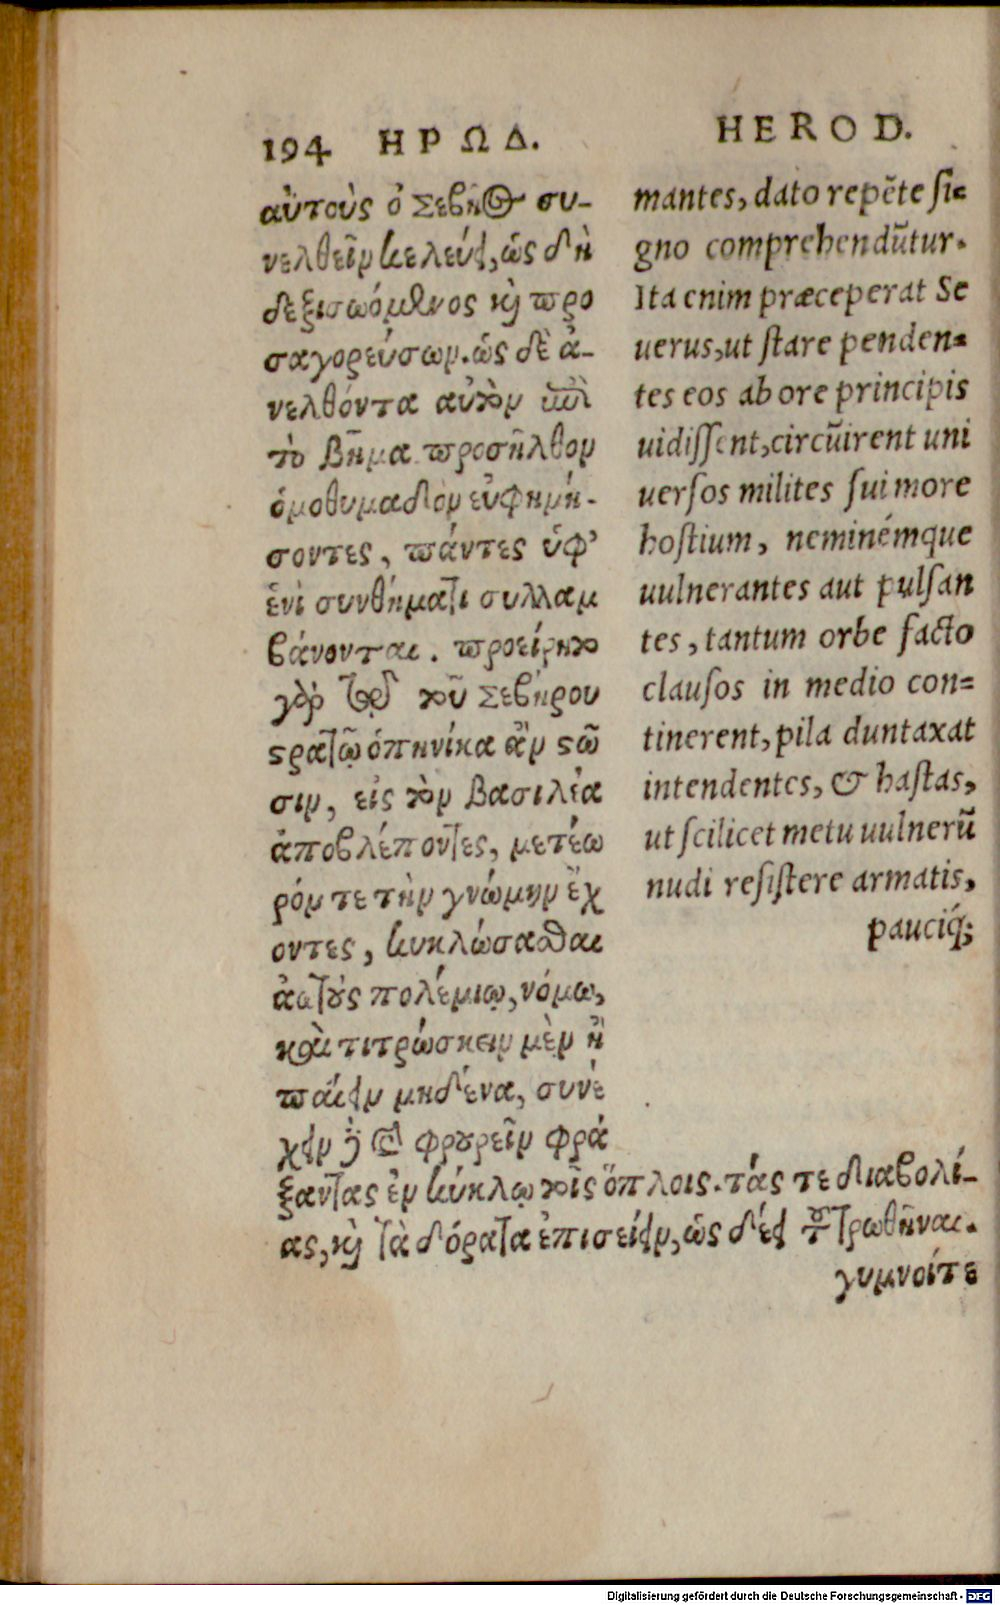 194 ΗΡΩΔ.
αὐτοὺς ὁ Σεβῆρος συ-
νελθεῖν κελεύει, ὡς δὴ
δεξιωσόμενος καὶ προ
σαγορεύσων. ὡς δὲ ἀ-
νελθόντα αὐτὸν ἐπὶ
τὸ βῆμα προσῆλθον
ὁμοθυμαδὸν εὐφημή-
σοντες, πάντες ὑφ’
ἑνὶ συνθήματι συλλαμ
βάνονται. προείρητο
γὰρ τῷ τοῦ Σεβήρου
στρατῷ ὁπηνίκα ἂν στῶ
σιν, εἰς τὸν βασιλέα
ἀποβλέποντες, μετέω
ρόν τε τὴν γνώμην ἔχ
οντες, κυκλώσασθαι
αὐτοὺς πολέμιῳ, νόμῳ,
καὶ τιτρώσκειν μὲν ἢ
παίειν μηδένα, συνέ
χειν δὲ καὶ φρουρεῖν φρά
ξαντας ἐν κύκλῳ τοῖς ὅπλοις. τάς τε διαβολί-
ας, καὶ τὰ δόρατα ἐπισείειν, ὡς δέει τοῦ τρωθῆναι.
γυμνοίτε
HEROD.
mantes, dato repẽte si=
gno comprehendũtur.
Ita enim præceperat Se
uerus, ut stare penden=
tes eos ab ore principis
uidissent, circũirent uni
uersos milites sui more
hostium, neminémque
uulnerantes aut pulsan
tes, tantum orbe facto
clausos in medio con=
tinerent, pila duntaxat
intendentes, & hastas,
ut scilicet metu uulnerũ
nudi resistere armatis,
pauciq́;
Digitalisierung gefördert durch die Deutsche Forschungsgemeinschaft - DFG